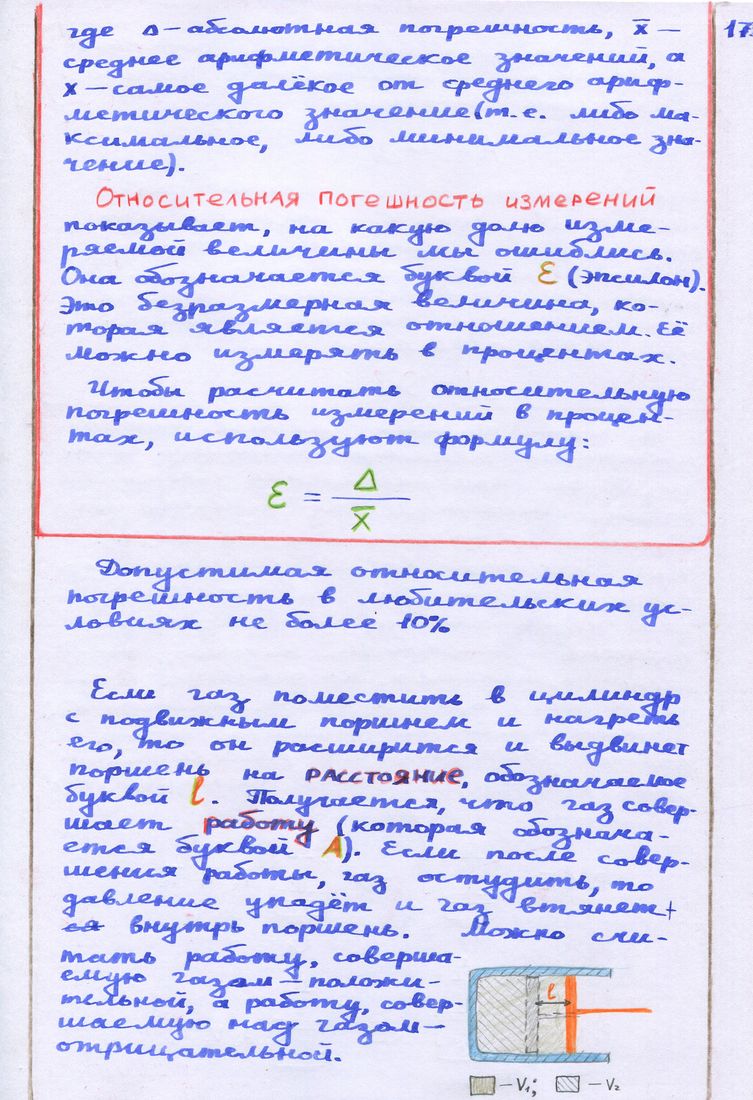 где Δ – абсолютная погрешность, x̄ –
17
среднее арифметическое значений, а
x – самое далёкое от среднего ариф-
метического значение (т.е. либо ма-
ксимальное, либо минимальное зна-
чение).
Относительная погешность измерений
показывает, на какую долю изме-
ряемой величины мы ошиблись.
Она обозначается буквой ε (эпсилон).
Это безразмерная величина, ко-
торая является отношением. Её
можно измерять в процентах.
Чтобы расчитать относительную
погрешность измерений в процен-
тах, используют формулу:
ε = Δ / x̄
Допустимая относительная
погрешность в любительских ус-
ловиях не более 10%
Если газ поместить в цилиндр
с подвижным поршнем и нагреть
его, то он расширится и выдвинет
поршень на расстояние, обозначаемое
буквой l. Получается, что газ совер-
шает работу (которая обознача-
ется буквой A). Если после совер-
шения работы, газ остудить, то
давление упадёт и газ втянет
внутрь поршень. Можно счи-
тать работу, соверша-
емую газом – положи-
тельной, а работу, совер-
шаемую над газом –
отрицательной.
l
– V₁; – V₂